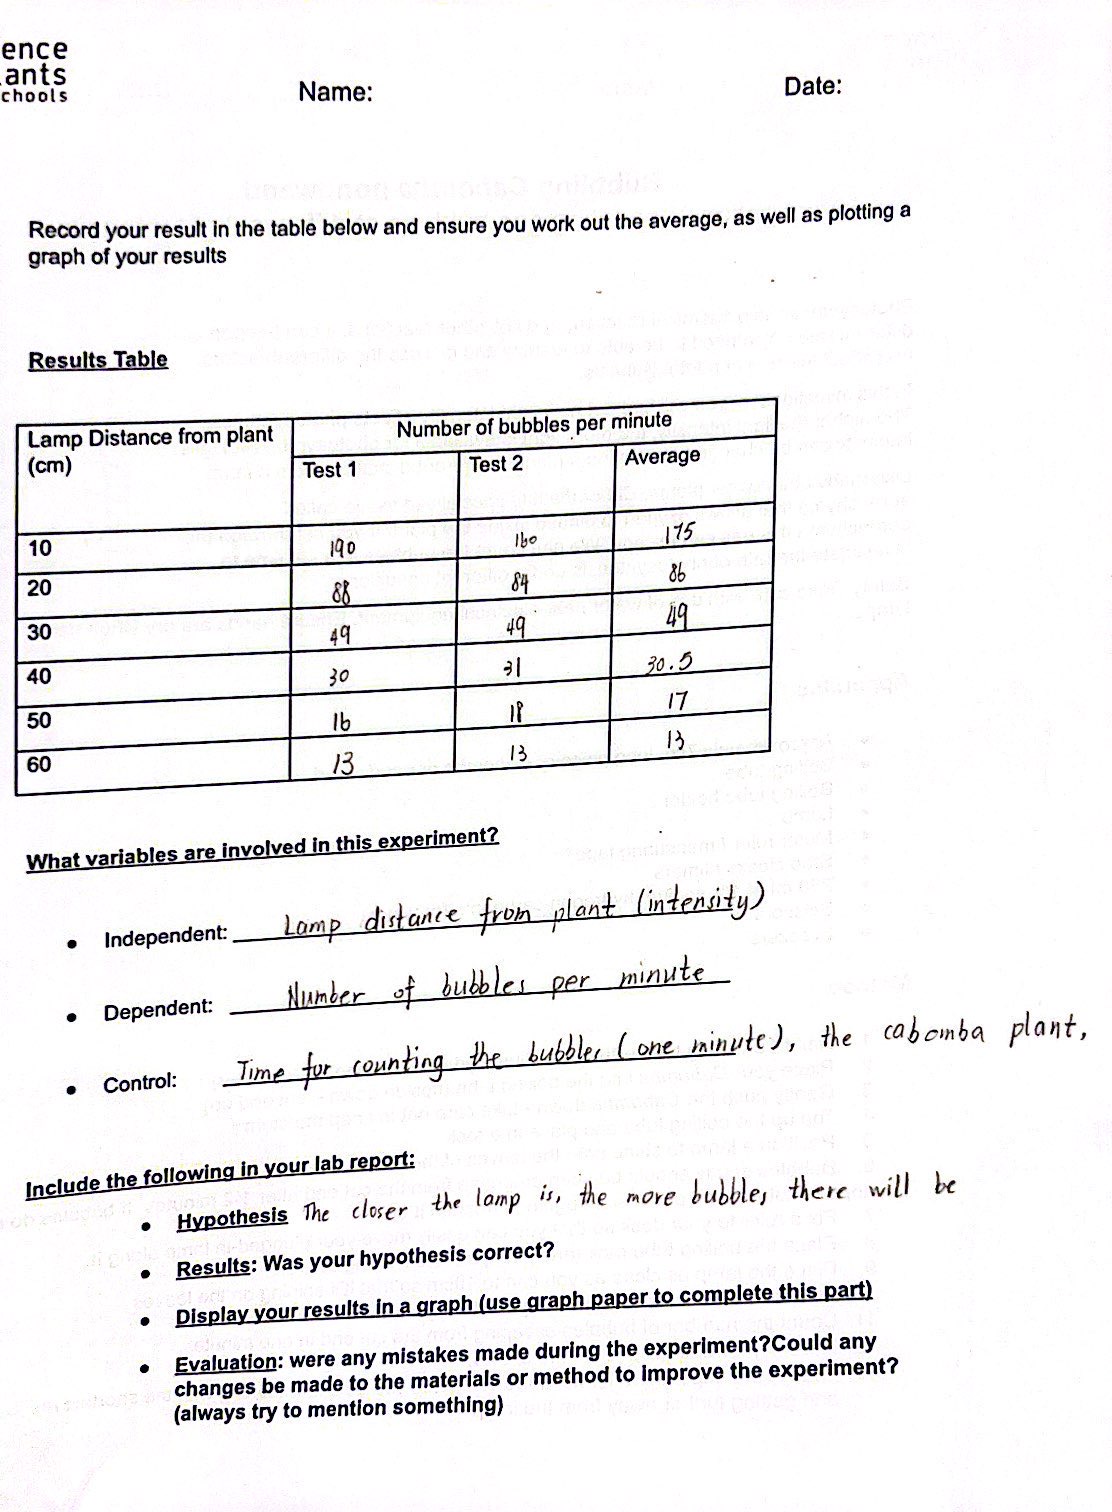 ence
ants
chools
Name:
Date:
Record your result in the table below and ensure you work out the average, as well as plotting a
graph of your results
Results Table
Lamp Distance from plant
(cm)
Number of bubbles per minute
Test 1
Test 2
Average
10 190 160 175
20 88 84 86
30 49 49 49
40 30 31 30.5
50 16 18 17
60 13 13 13
What variables are involved in this experiment?
• Independent: Lamp distance from plant (intensity)
• Dependent: Number of bubbles per minute
• Control: Time for counting the bubbles (one minute), the cabomba plant,
Include the following in your lab report:
• Hypothesis The closer the lamp is, the more bubbles there will be
• Results: Was your hypothesis correct?
• Display your results in a graph (use graph paper to complete this part)
• Evaluation: were any mistakes made during the experiment?Could any
changes be made to the materials or method to improve the experiment?
(always try to mention something)